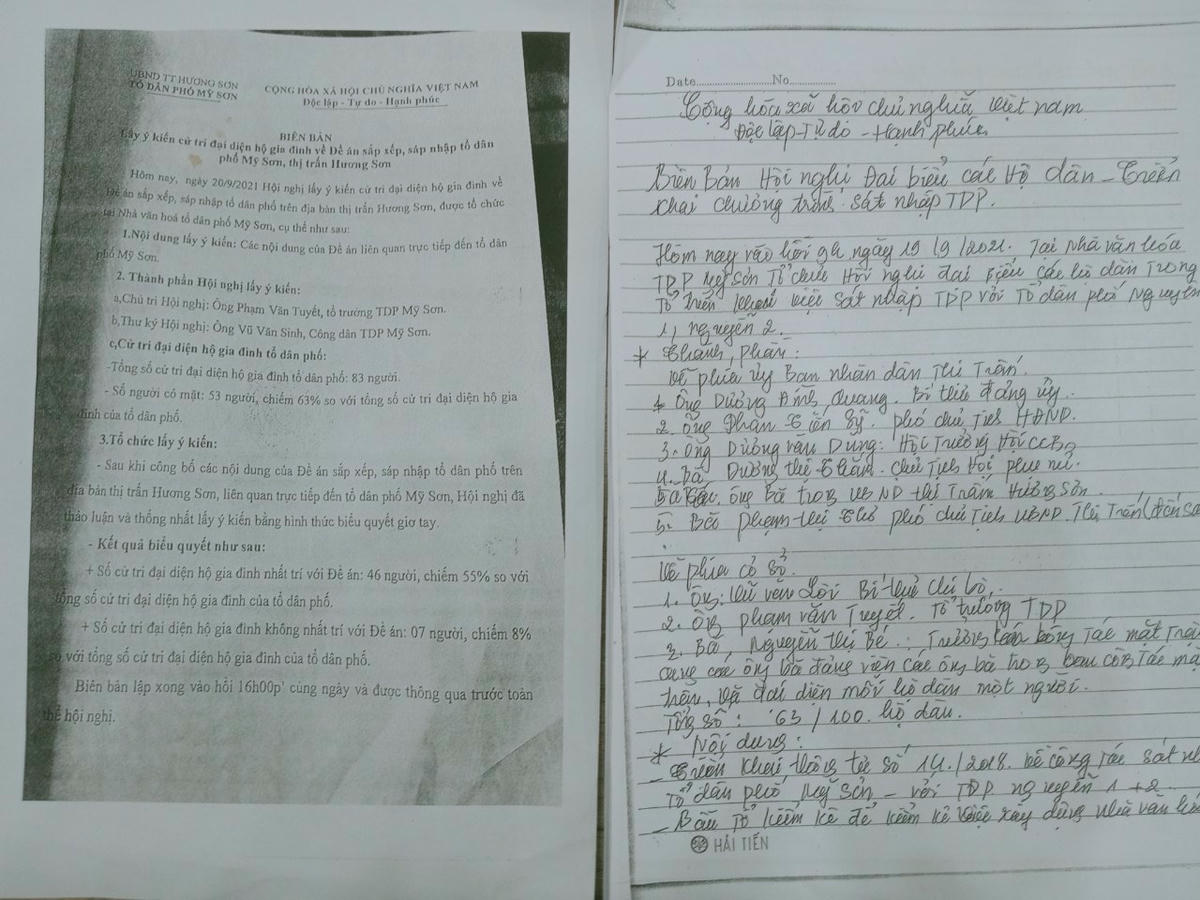 UBND TT HƯƠNG SƠN
TỔ DÂN PHỐ MỸ SƠN
CỘNG HÒA XÃ HỘI CHỦ NGHĨA VIỆT NAM
Độc lập - Tự do - Hạnh phúc
BIÊN BẢN
Lấy ý kiến cử tri đại diện hộ gia đình về Đề án sắp xếp, sáp nhập tổ dân
phố Mỹ Sơn, thị trấn Hương Sơn
Hôm nay, ngày 20/9/2021 Hội nghị lấy ý kiến cử tri đại diện hộ gia đình về
Đề án sắp xếp, sáp nhập tổ dân phố trên địa bàn thị trấn Hương Sơn, được tổ chức
tại Nhà văn hoá tổ dân phố Mỹ Sơn, cụ thể như sau:
1.Nội dung lấy ý kiến: Các nội dung của Đề án liên quan trực tiếp đến tổ dân
phố Mỹ Sơn.
2. Thành phần Hội nghị lấy ý kiến:
a,Chủ trì Hội nghị: Ông Phạm Văn Tuyết, tổ trưởng TDP Mỹ Sơn.
b,Thư ký Hội nghị: Ông Vũ Văn Sinh, Công dân TDP Mỹ Sơn.
c,Cử tri đại diện hộ gia đình tổ dân phố:
-Tổng số cử tri đại diện hộ gia đình tổ dân phố: 83 người.
- Số người có mặt: 53 người, chiếm 63% so với tổng số cử tri đại diện hộ gia
đình của tổ dân phố.
3.Tổ chức lấy ý kiến:
- Sau khi công bố các nội dung của Đề án sắp xếp, sáp nhập tổ dân phố trên
địa bàn thị trấn Hương Sơn, liên quan trực tiếp đến tổ dân phố Mỹ Sơn, Hội nghị đã
thảo luận và thống nhất lấy ý kiến bằng hình thức biểu quyết giơ tay.
- Kết quả biểu quyết như sau:
+ Số cử tri đại diện hộ gia đình nhất trí với Đề án: 46 người, chiếm 55% so với
tổng số cử tri đại diện hộ gia đình của tổ dân phố.
+ Số cử tri đại diện hộ gia đình không nhất trí với Đề án: 07 người, chiếm 8%
so với tổng số cử tri đại diện hộ gia đình của tổ dân phố.
Biên bản lập xong vào hồi 16h00p' cùng ngày và được thông qua trước toàn
thể hội nghị.
Date No
Cộng hóa xã hôi chủ nghiã Việt nam
Độc lập - Tự do - Hạnh phúc
Biên Bản Hội nghị Đại biểu các Hộ dân - Triển
khai chương trình sát nhập TDP.
Hôm nay vào hồi 9h ngày 19/9/2021. Tại Nhà văn hóa
TDP Mỹ Sơn Tổ chức Hội nghị đại biểu các hộ dân trong
Tổ triển khai việc sát nhập TDP với Tổ dân phố Nguyễn
1, nguyễn 2.
* Thành phần:
Về phía ủy Ban nhân dân Thị Trấn.
1. Ông Dương Quang. Bí thư đảng ủy.
2. Ông Phan Tiến Sỹ. phó chủ tịch HĐND.
3. Ông Dương Văn Dung: Hội Trưởng Hội CCB
4. Bà Dương thị chủ tịch Hội phụ nữ.
ông Bà trong UBND thị Trấn Hương Sơn.
5. Bà phạm thị Thơ phó chủ tịch UBND. Thị Trấn
Về phía cơ sở.
1. Ông: Vũ văn Lời Bí thư chi bộ,
2. Ông phạm văn Tuyết. Tổ trưởng TDP
3. Bà, Nguyễn thị Bé: Trưởng ban công tác mặt Trận
cùng các ông bà đảng viên các ông bà trong ban công tác mặt
trận, và đại diện mỗi hộ dân một người.
Tổng số: 63/100. hộ dân.
* Nội dung:
- Triển khai thông tư số 14/2018. về công tác sát
Tổ dân phố Mỹ Sơn - với TDP nguyễn 1 + 2
- Bầu Tổ kiểm kê để kiểm kê việc xây dựng nhà văn hóa
HẢI TIẾN